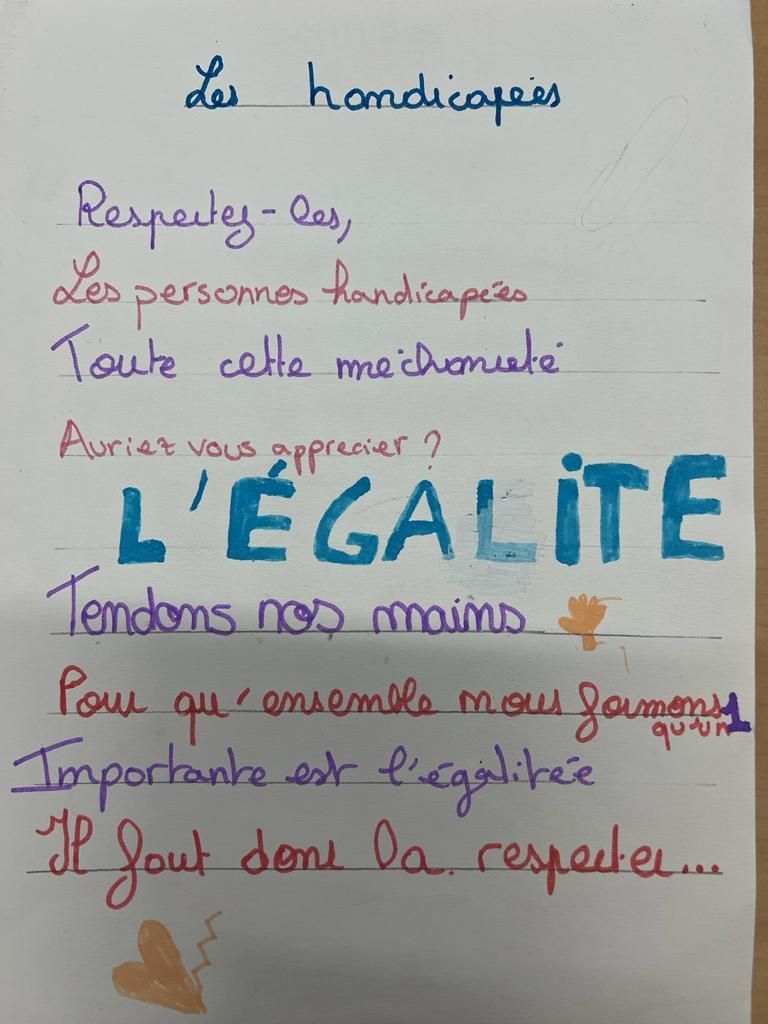 Les handicapées
Respectez-les,
Les personnes handicapées
Toute cette méchanceté
Auriez vous apprecier ?
L'ÉGALITE
Tendons nos mains
Pour qu'ensemble nous formons
qu'un 1
Importante est l'égalitée
Il faut donc la respecter...